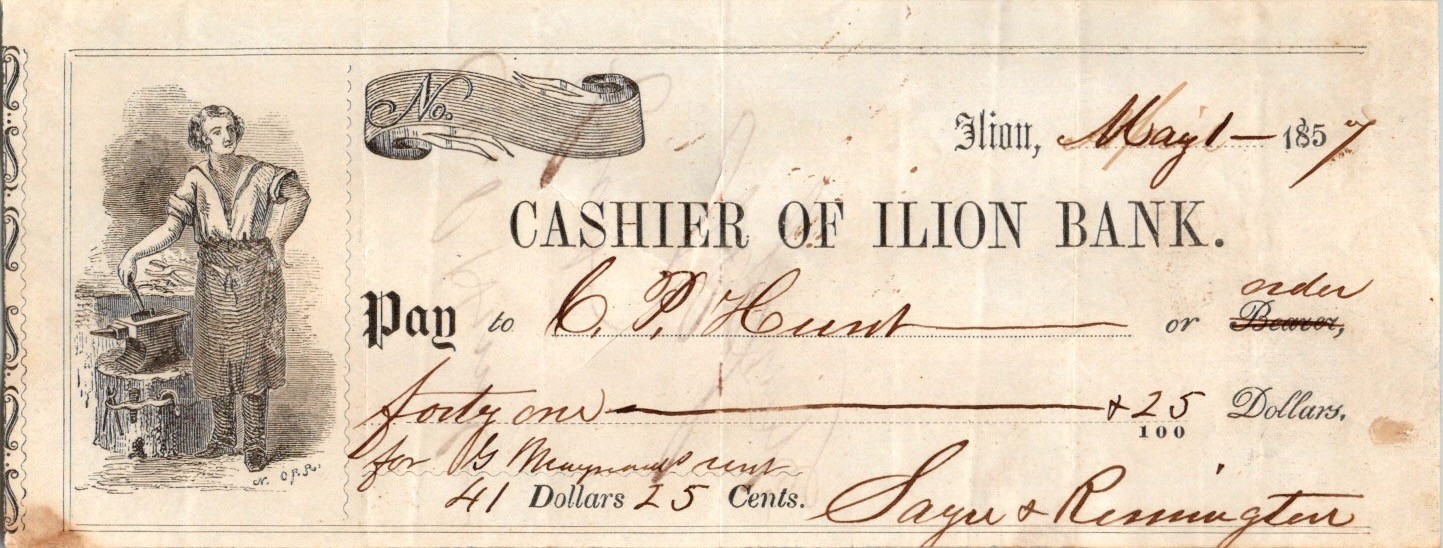 No.
Ilion, May 1 — 1857
CASHIER OF ILION BANK.
order
Pay to C. P. Hunt or Bearer,
forty one & 25 Dollars,
100
for G Maynards rent
41 Dollars 25 Cents.
Sayre & Remington